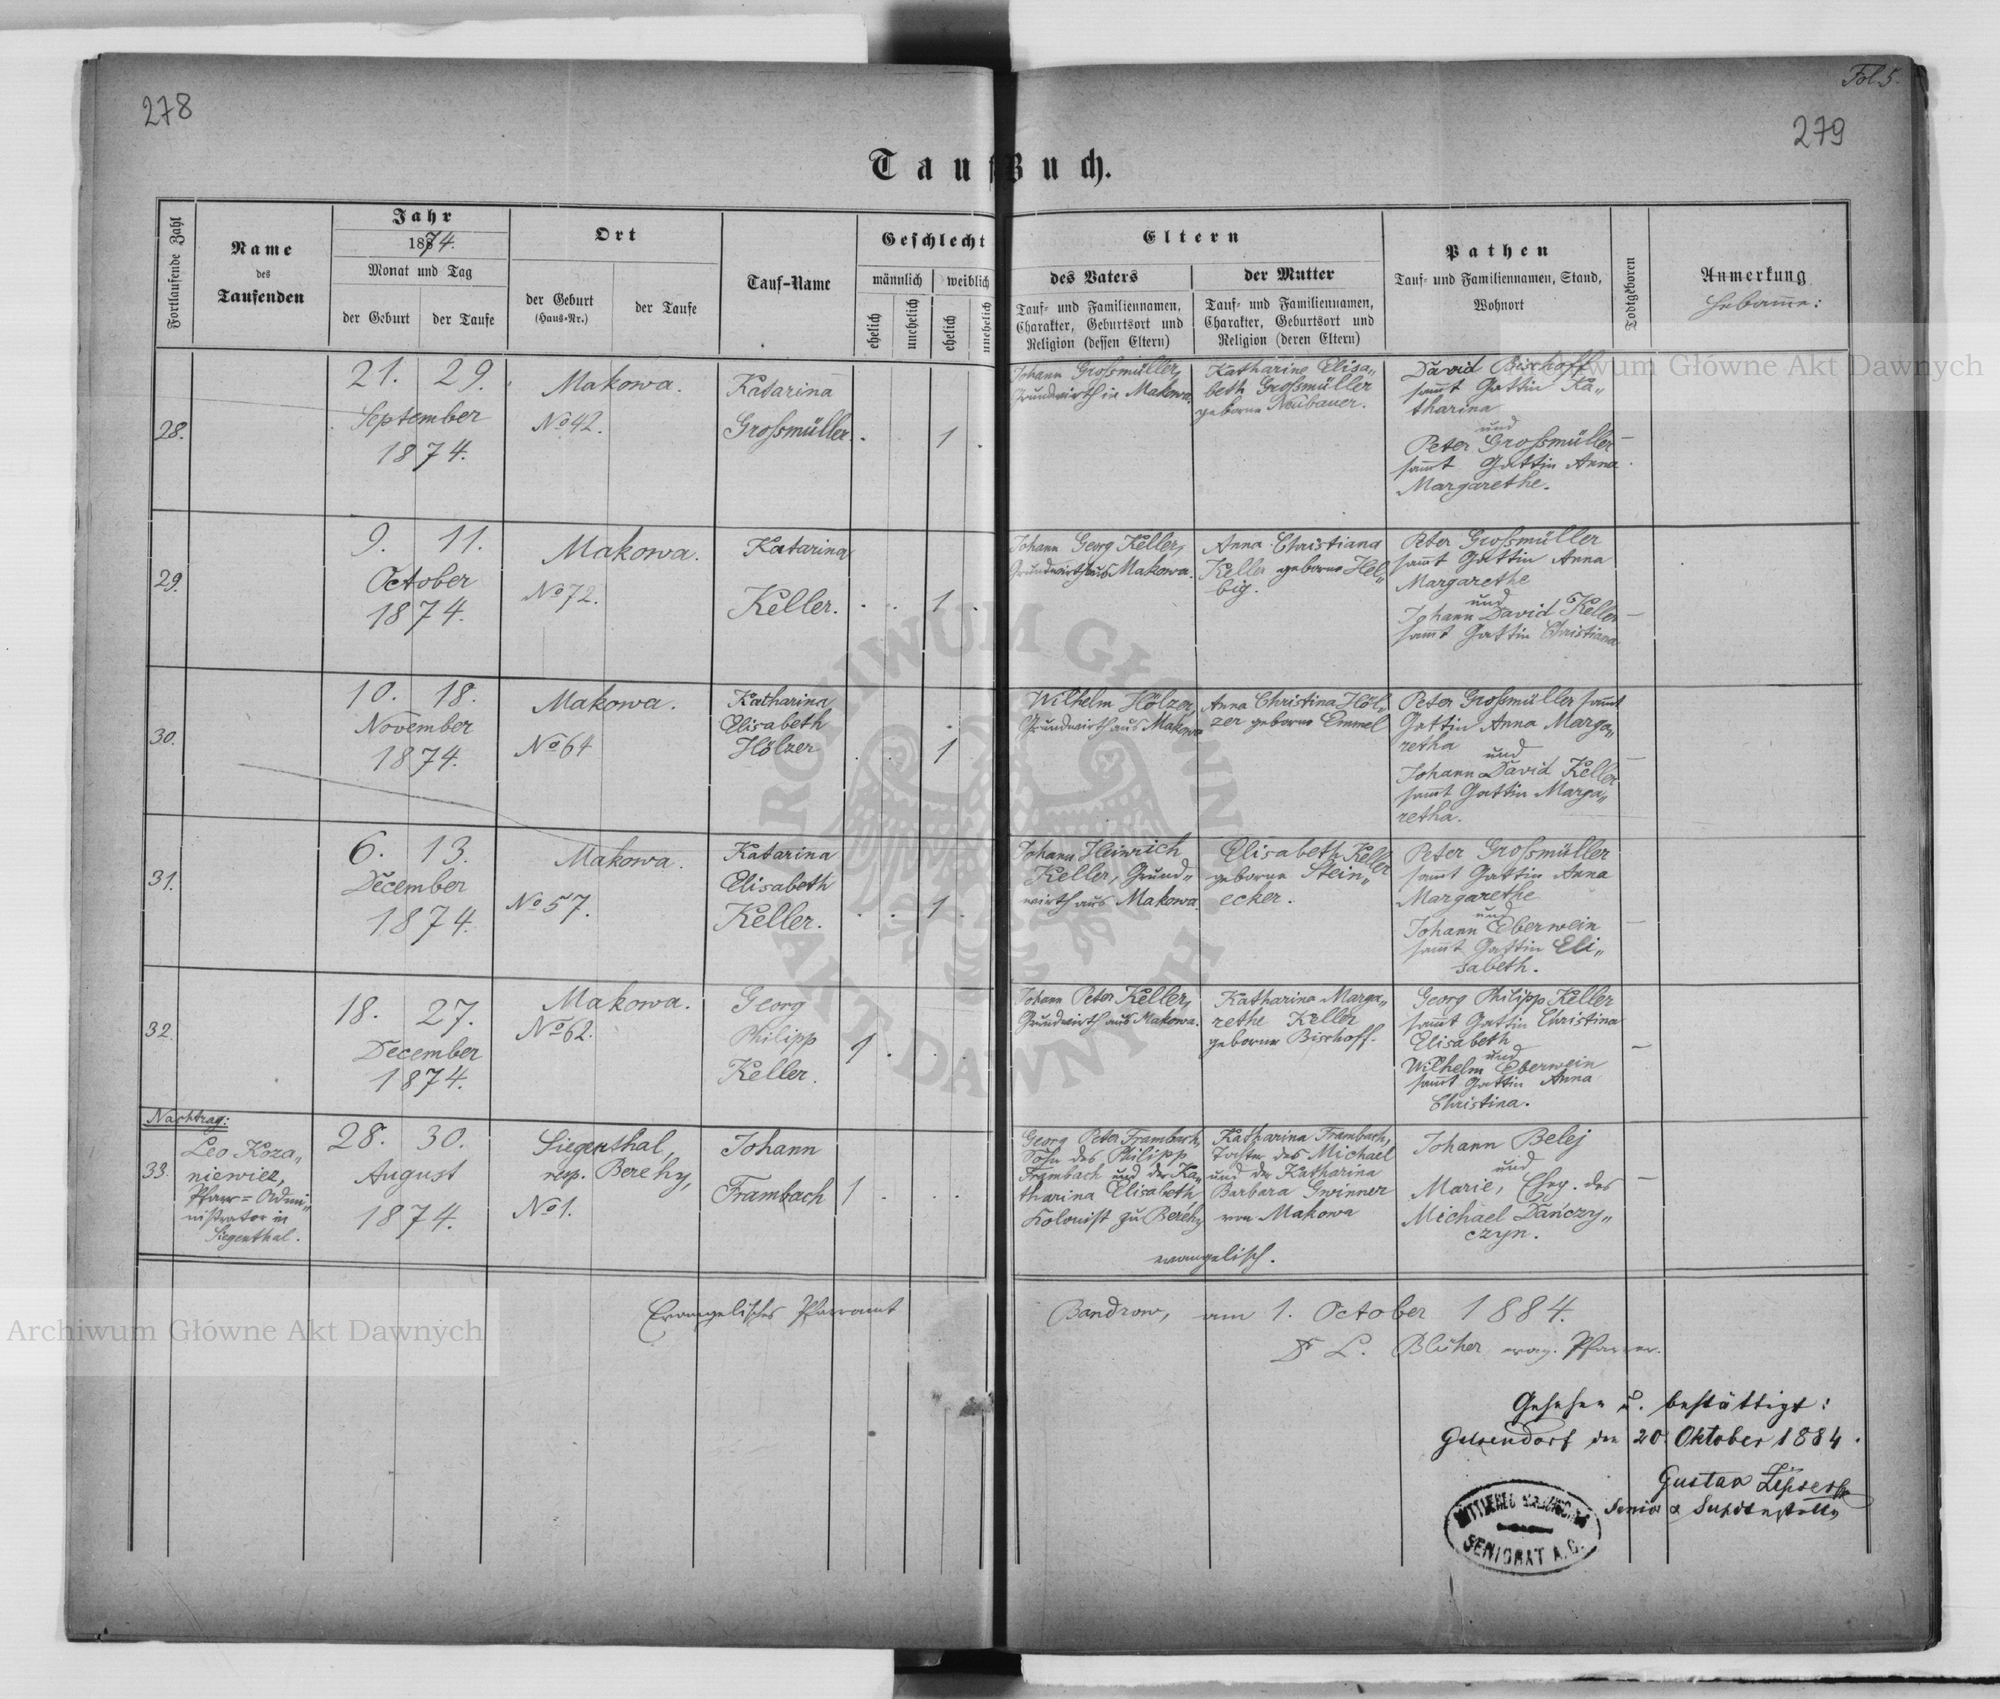 278
Fol 5.
279
TaufBuch.
Fortlaufende Zahl
Name
des
Taufenden
Jahr
1874.
Monat und Tag
der Geburt
der Taufe
Ort
der Geburt
(Haus-Nr.)
der Taufe
Tauf-Name
Geschlecht
männlich
weiblich
ehelich
unehelich
ehelich
unehelich
Eltern
des Vaters
Tauf- und Familiennamen,
Charakter, Geburtsort und
Religion (dessen Eltern)
der Mutter
Tauf- und Familiennamen,
Charakter, Geburtsort und
Religion (deren Eltern)
Pathen
Tauf- und Familiennamen, Stand,
Wohnort
Todtgeboren
Anmerkung
Hebame:
28.
21. 29.
September
1874.
Makowa.
No 42.
Katarina
Großmüller
1
Johann Großmüller,
Grundwirth in Makowa.
Katharine Elisa„
beth Großmüller
geborne Neubauer.
David Bischoff
samt Gattin Ka„
tharina
und
Peter Großmüller
samt Gattin Anna
Margarethe.
29.
9. 11.
October
1874.
Makowa.
No 72.
Katarina
Keller.
1
Johann Georg Keller,
Grundwirth aus Makowa.
Anna Christiana
Keller geborne Hel„
big.
Peter Großmüller
samt Gattin Anna
Margarethe
und
Johann David Keller
samt Gattin Christiana
30.
10. 18.
November
1874.
Makowa.
No 64
Katharina
Elisabeth
Hölzer
1
Wilhelm Hölzer,
Grundwirth aus Makowa
Anna Christina Höl„
zer geborne Emmel
Peter Großmüller samt
Gattin Anna Marga„
retha
und
Johann David Keller
samt Gattin Marga„
retha.
31.
6. 13.
December
1874.
Makowa.
No 57.
Katarina
Elisabeth
Keller.
1
Johann Heinrich
Keller, Grund„
wirth aus Makowa.
Elisabeth Keller
geborne Stein„
ecker.
Peter Großmüller
samt Gattin Anna
Margarethe
und
Johann Eberwein
samt Gattin Eli„
sabeth.
32.
18. 27.
December
1874.
Makowa.
No 62.
Georg
Philipp
Keller.
1
Johann Peter Keller,
Grundwirth aus Makowa.
Katharina Marga„
rethe Keller
geborne Bischoff.
Georg Philipp Keller
samt Gattin Christina
Elisabeth
und
Wilhelm Eberwein
samt Gattin Anna
Christina.
Nachtrag:
33.
Leo Koza„
niewicz,
Pfarr=Admi„
nistrator in
Siegenthal.
28. 30.
August
1874.
Siegenthal,
resp. Berehy,
No 1.
Johann
Frambach
1
Georg Peter Frambach,
Sohn des Philipp
Frambach und der Ka„
tharina Elisabeth
Kolonist zu Berehy
Katharina Frambach,
Tochter des Michael
und der Katharina
Barbara Gwinner
von Makowa
evangelisch.
Johann Belej
und
Marie, Ehg. des
Michael Dańczy„
czyn.
Evangelisches Pfarramt
Bandrow, am 1. October 1884.
Dr L. Blüher evag. Pfarrer.
Gesehen u. bestättigt:
Gelsendorf den 20 Oktober 1884.
Gustav
Senior
SENIORAT A.C.
Archiwum Główne Akt Dawnych
Archiwum Główne Akt Dawnych
ARCHIWUM GŁÓWNE
AKT DAWNYCH